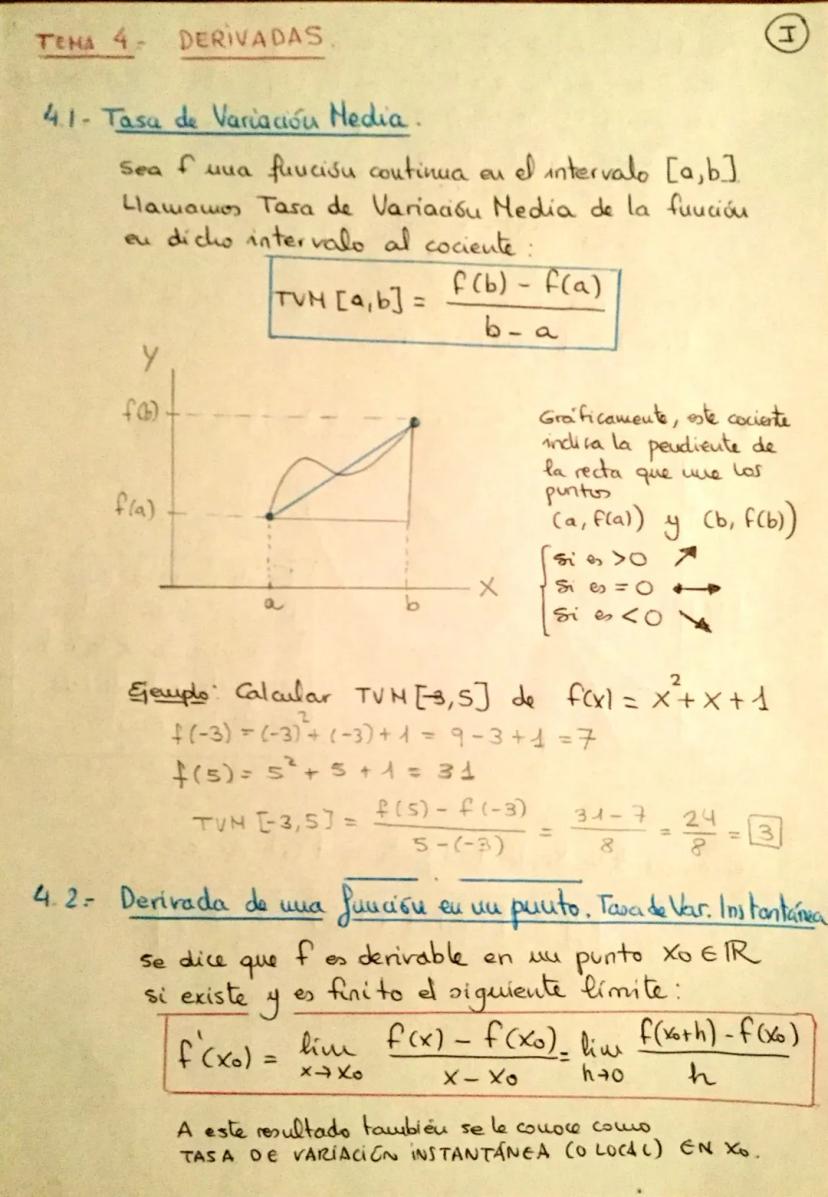 TEMA 4.- DERIVADAS.
I
4.1- Tasa de Variación Media.
Sea f una función continua en el intervalo [a,b]
Llamamos Tasa de Variación Media de la función
en dicho intervalo al cociente:
TVM [a,b] = (f(b) - f(a)) / (b - a)
Y
f(b)
f(a)
a
b
X
Gráficamente, este cociente
indica la pendiente de
la recta que une los
puntos
(a, f(a)) y (b, f(b))
Si es >0 ↗
Si es = 0 ↔
Si es <0 ↘
Ejemplo: Calcular TVM [-3,5] de f(x) = x² + x + 1
f(-3) = (-3)² + (-3) + 1 = 9 - 3 + 1 = 7
f(5) = 5² + 5 + 1 = 31
TVM [-3,5] = (f(5) - f(-3)) / (5 - (-3)) = (31 - 7) / 8 = 24 / 8 = 3
4.2.- Derivada de una función en un punto. Tasa de Var. Instantánea
Se dice que f es derivable en un punto x₀ ∈ ℝ
si existe y es finito el siguiente límite:
f'(x₀) = lim x→x₀ (f(x) - f(x₀)) / (x - x₀) = lim h→0 (f(x₀+h) - f(x₀)) / h
A este resultado también se le conoce como
TASA DE VARIACIÓN INSTANTÁNEA (O LOCAL) EN x₀.